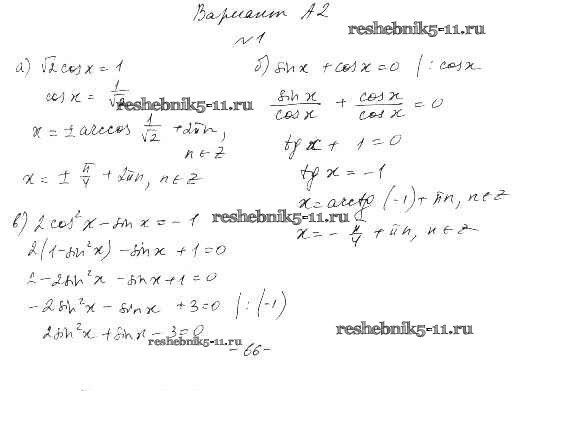 Вариант А2
reshebnik5-11.ru
№1
а) √2 cos x = 1
cos x = 1/√2
reshebnik5-11.ru
x = ± arccos 1/√2 + 2πn,
n ∈ Z
x = ± π/4 + 2πn, n ∈ Z
б) sin x + cos x = 0 | : cos x
sin x/cos x + cos x/cos x = 0
tg x + 1 = 0
tg x = -1
x = arctg (-1) + πn, n ∈ Z
x = - π/4 + πn, n ∈ Z
в) 2cos²x - sin x = -1
reshebnik5-11.ru
2(1-sin²x) - sin x + 1 = 0
2 - 2sin²x - sin x + 1 = 0
-2sin²x - sin x + 3 = 0 | : (-1)
2sin²x + sin x - 3 = 0
reshebnik5-11.ru
reshebnik5-11.ru
- 66 -